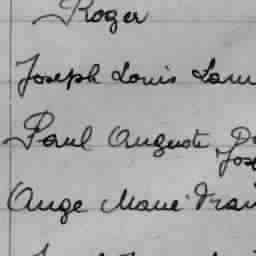 Roger
Joseph Louis Lau
Paul Auguste, D
Jose
Ange Marie Fran